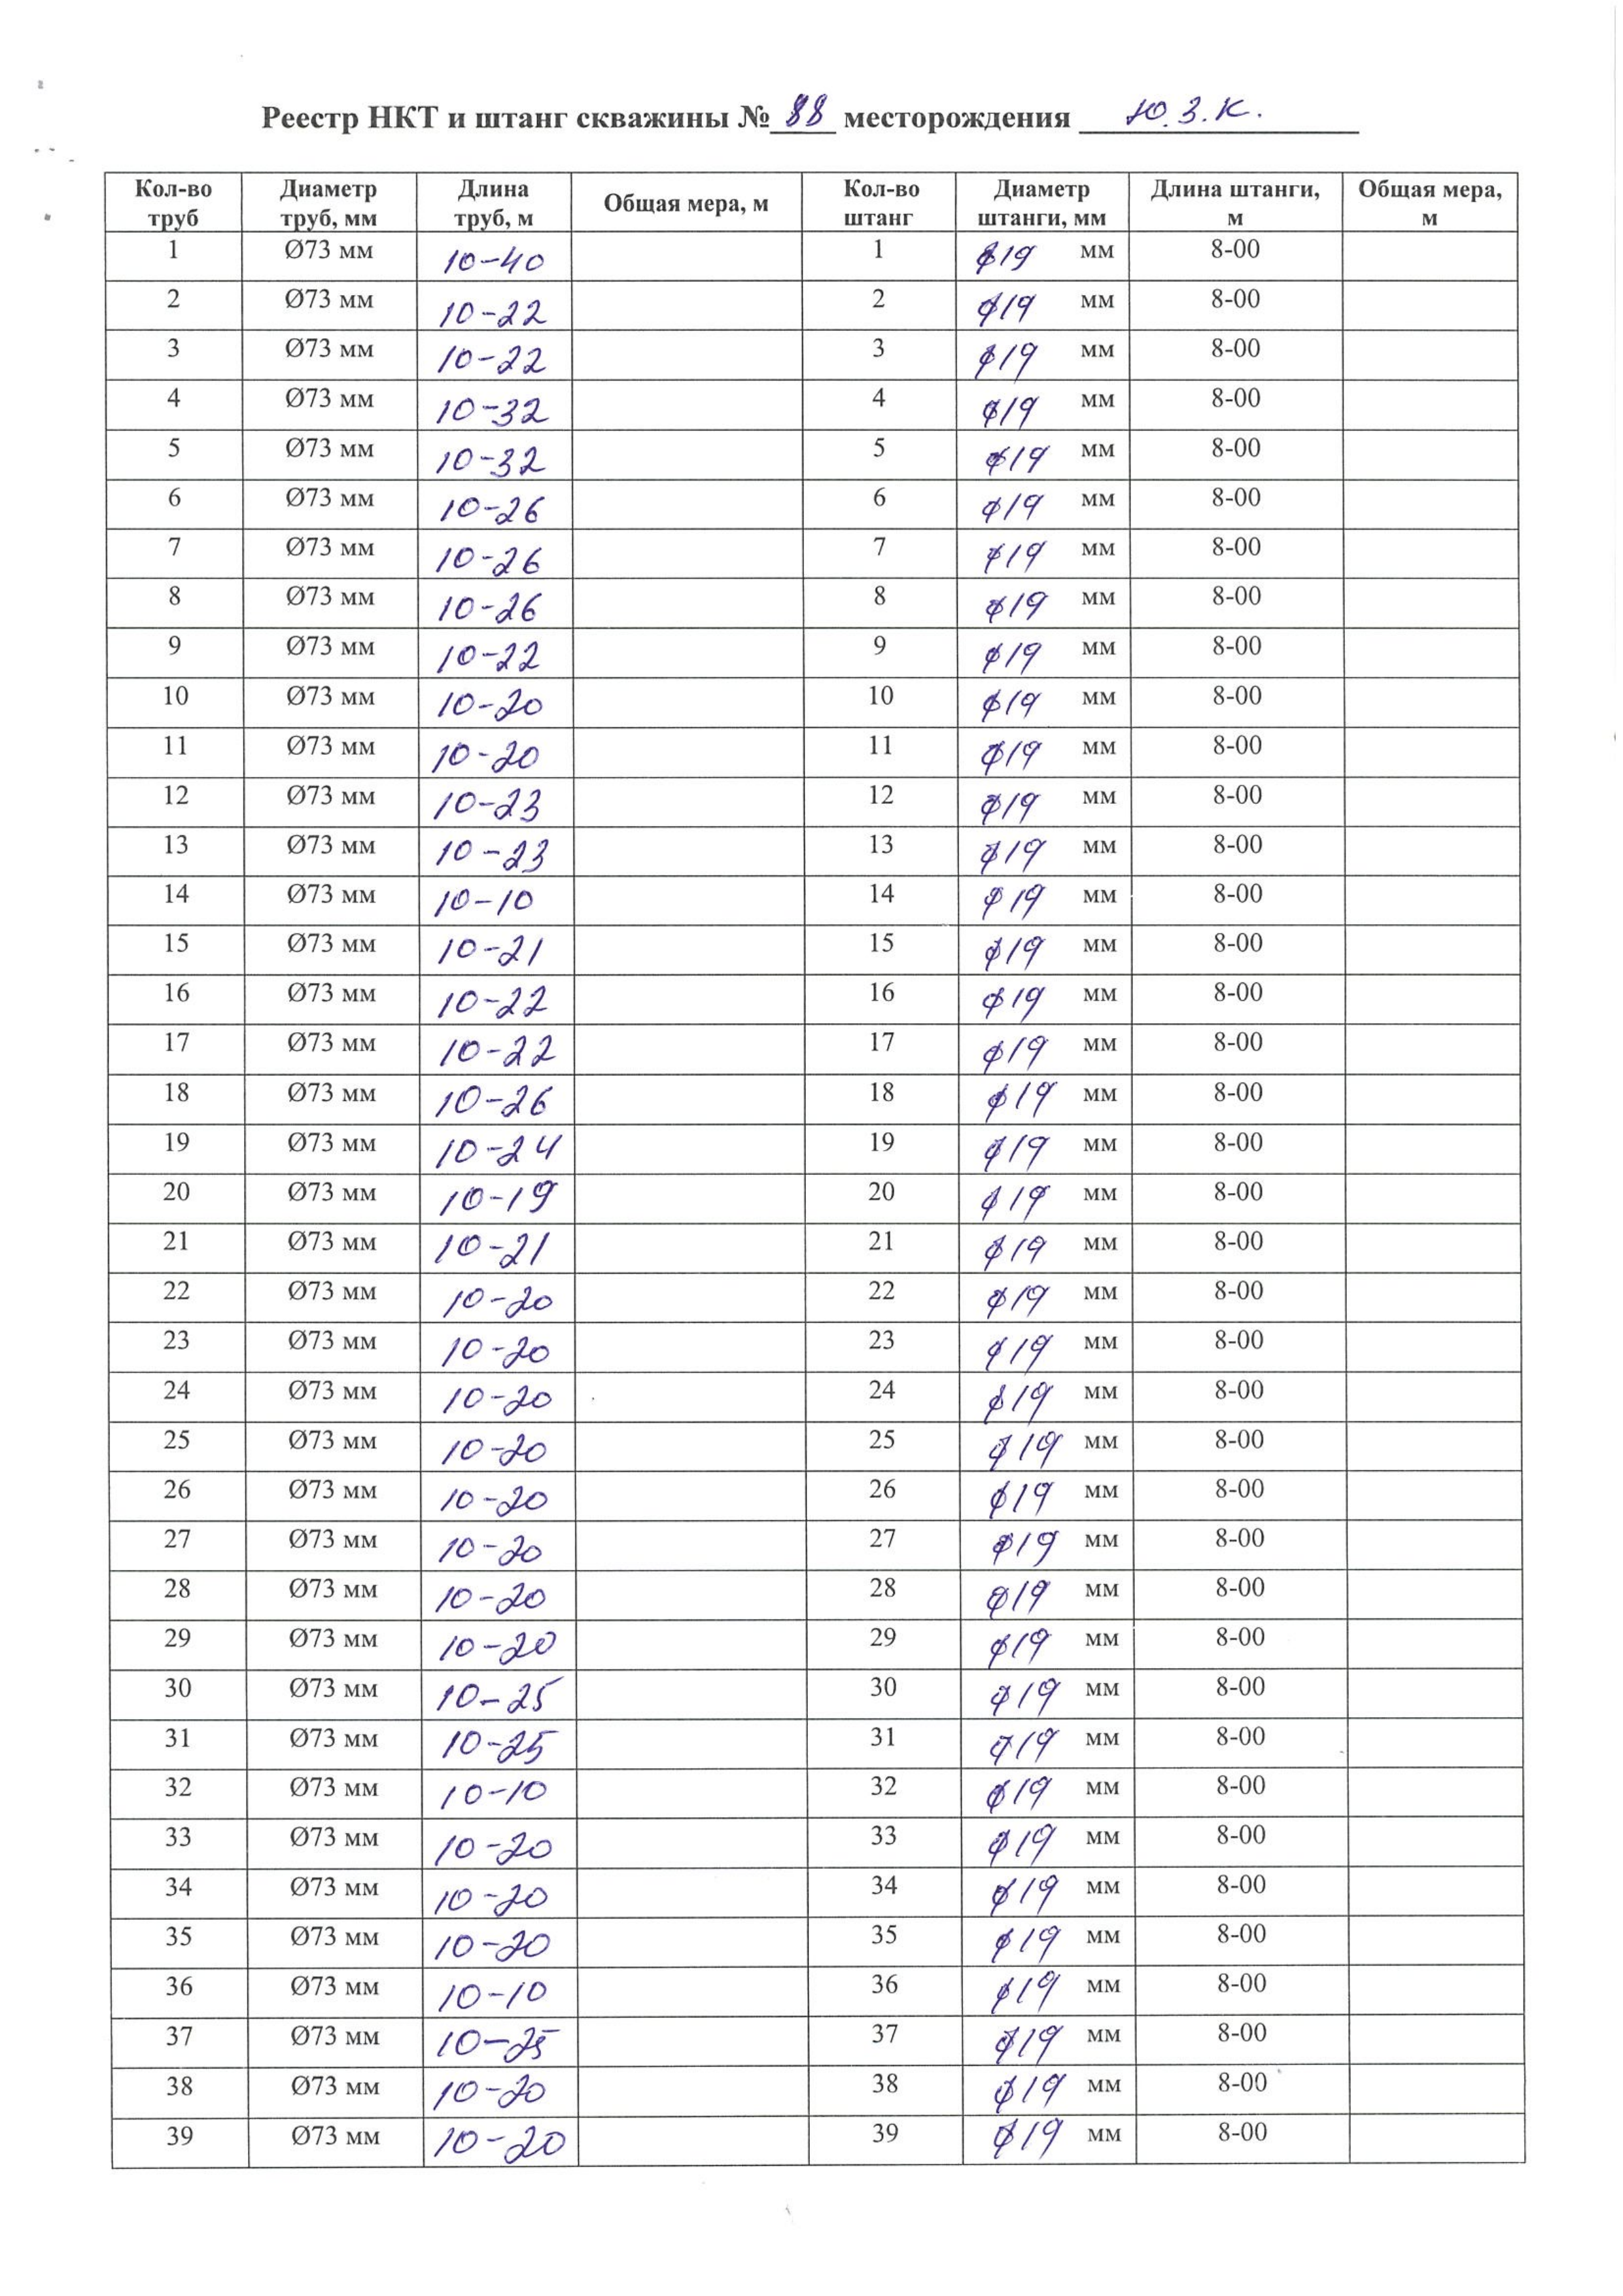 Реестр НКТ и штанг скважины № 88 месторождения Ю.З.К.
Кол-во труб Диаметр труб, мм Длина труб, м Общая мера, м Кол-во штанг Диаметр штанги, мм Длина штанги, м Общая мера, м
1 Ø73 мм 10-40 1 Ø19 мм 8-00
2 Ø73 мм 10-22 2 Ø19 мм 8-00
3 Ø73 мм 10-22 3 Ø19 мм 8-00
4 Ø73 мм 10-32 4 Ø19 мм 8-00
5 Ø73 мм 10-32 5 Ø19 мм 8-00
6 Ø73 мм 10-26 6 Ø19 мм 8-00
7 Ø73 мм 10-26 7 Ø19 мм 8-00
8 Ø73 мм 10-26 8 Ø19 мм 8-00
9 Ø73 мм 10-22 9 Ø19 мм 8-00
10 Ø73 мм 10-20 10 Ø19 мм 8-00
11 Ø73 мм 10-20 11 Ø19 мм 8-00
12 Ø73 мм 10-23 12 Ø19 мм 8-00
13 Ø73 мм 10-23 13 Ø19 мм 8-00
14 Ø73 мм 10-10 14 Ø19 мм 8-00
15 Ø73 мм 10-21 15 Ø19 мм 8-00
16 Ø73 мм 10-22 16 Ø19 мм 8-00
17 Ø73 мм 10-22 17 Ø19 мм 8-00
18 Ø73 мм 10-26 18 Ø19 мм 8-00
19 Ø73 мм 10-24 19 Ø19 мм 8-00
20 Ø73 мм 10-19 20 Ø19 мм 8-00
21 Ø73 мм 10-21 21 Ø19 мм 8-00
22 Ø73 мм 10-20 22 Ø19 мм 8-00
23 Ø73 мм 10-20 23 Ø19 мм 8-00
24 Ø73 мм 10-20 24 Ø19 мм 8-00
25 Ø73 мм 10-20 25 Ø19 мм 8-00
26 Ø73 мм 10-20 26 Ø19 мм 8-00
27 Ø73 мм 10-20 27 Ø19 мм 8-00
28 Ø73 мм 10-20 28 Ø19 мм 8-00
29 Ø73 мм 10-20 29 Ø19 мм 8-00
30 Ø73 мм 10-25 30 Ø19 мм 8-00
31 Ø73 мм 10-25 31 Ø19 мм 8-00
32 Ø73 мм 10-10 32 Ø19 мм 8-00
33 Ø73 мм 10-20 33 Ø19 мм 8-00
34 Ø73 мм 10-20 34 Ø19 мм 8-00
35 Ø73 мм 10-20 35 Ø19 мм 8-00
36 Ø73 мм 10-10 36 Ø19 мм 8-00
37 Ø73 мм 10-25 37 Ø19 мм 8-00
38 Ø73 мм 10-20 38 Ø19 мм 8-00
39 Ø73 мм 10-20 39 Ø19 мм 8-00